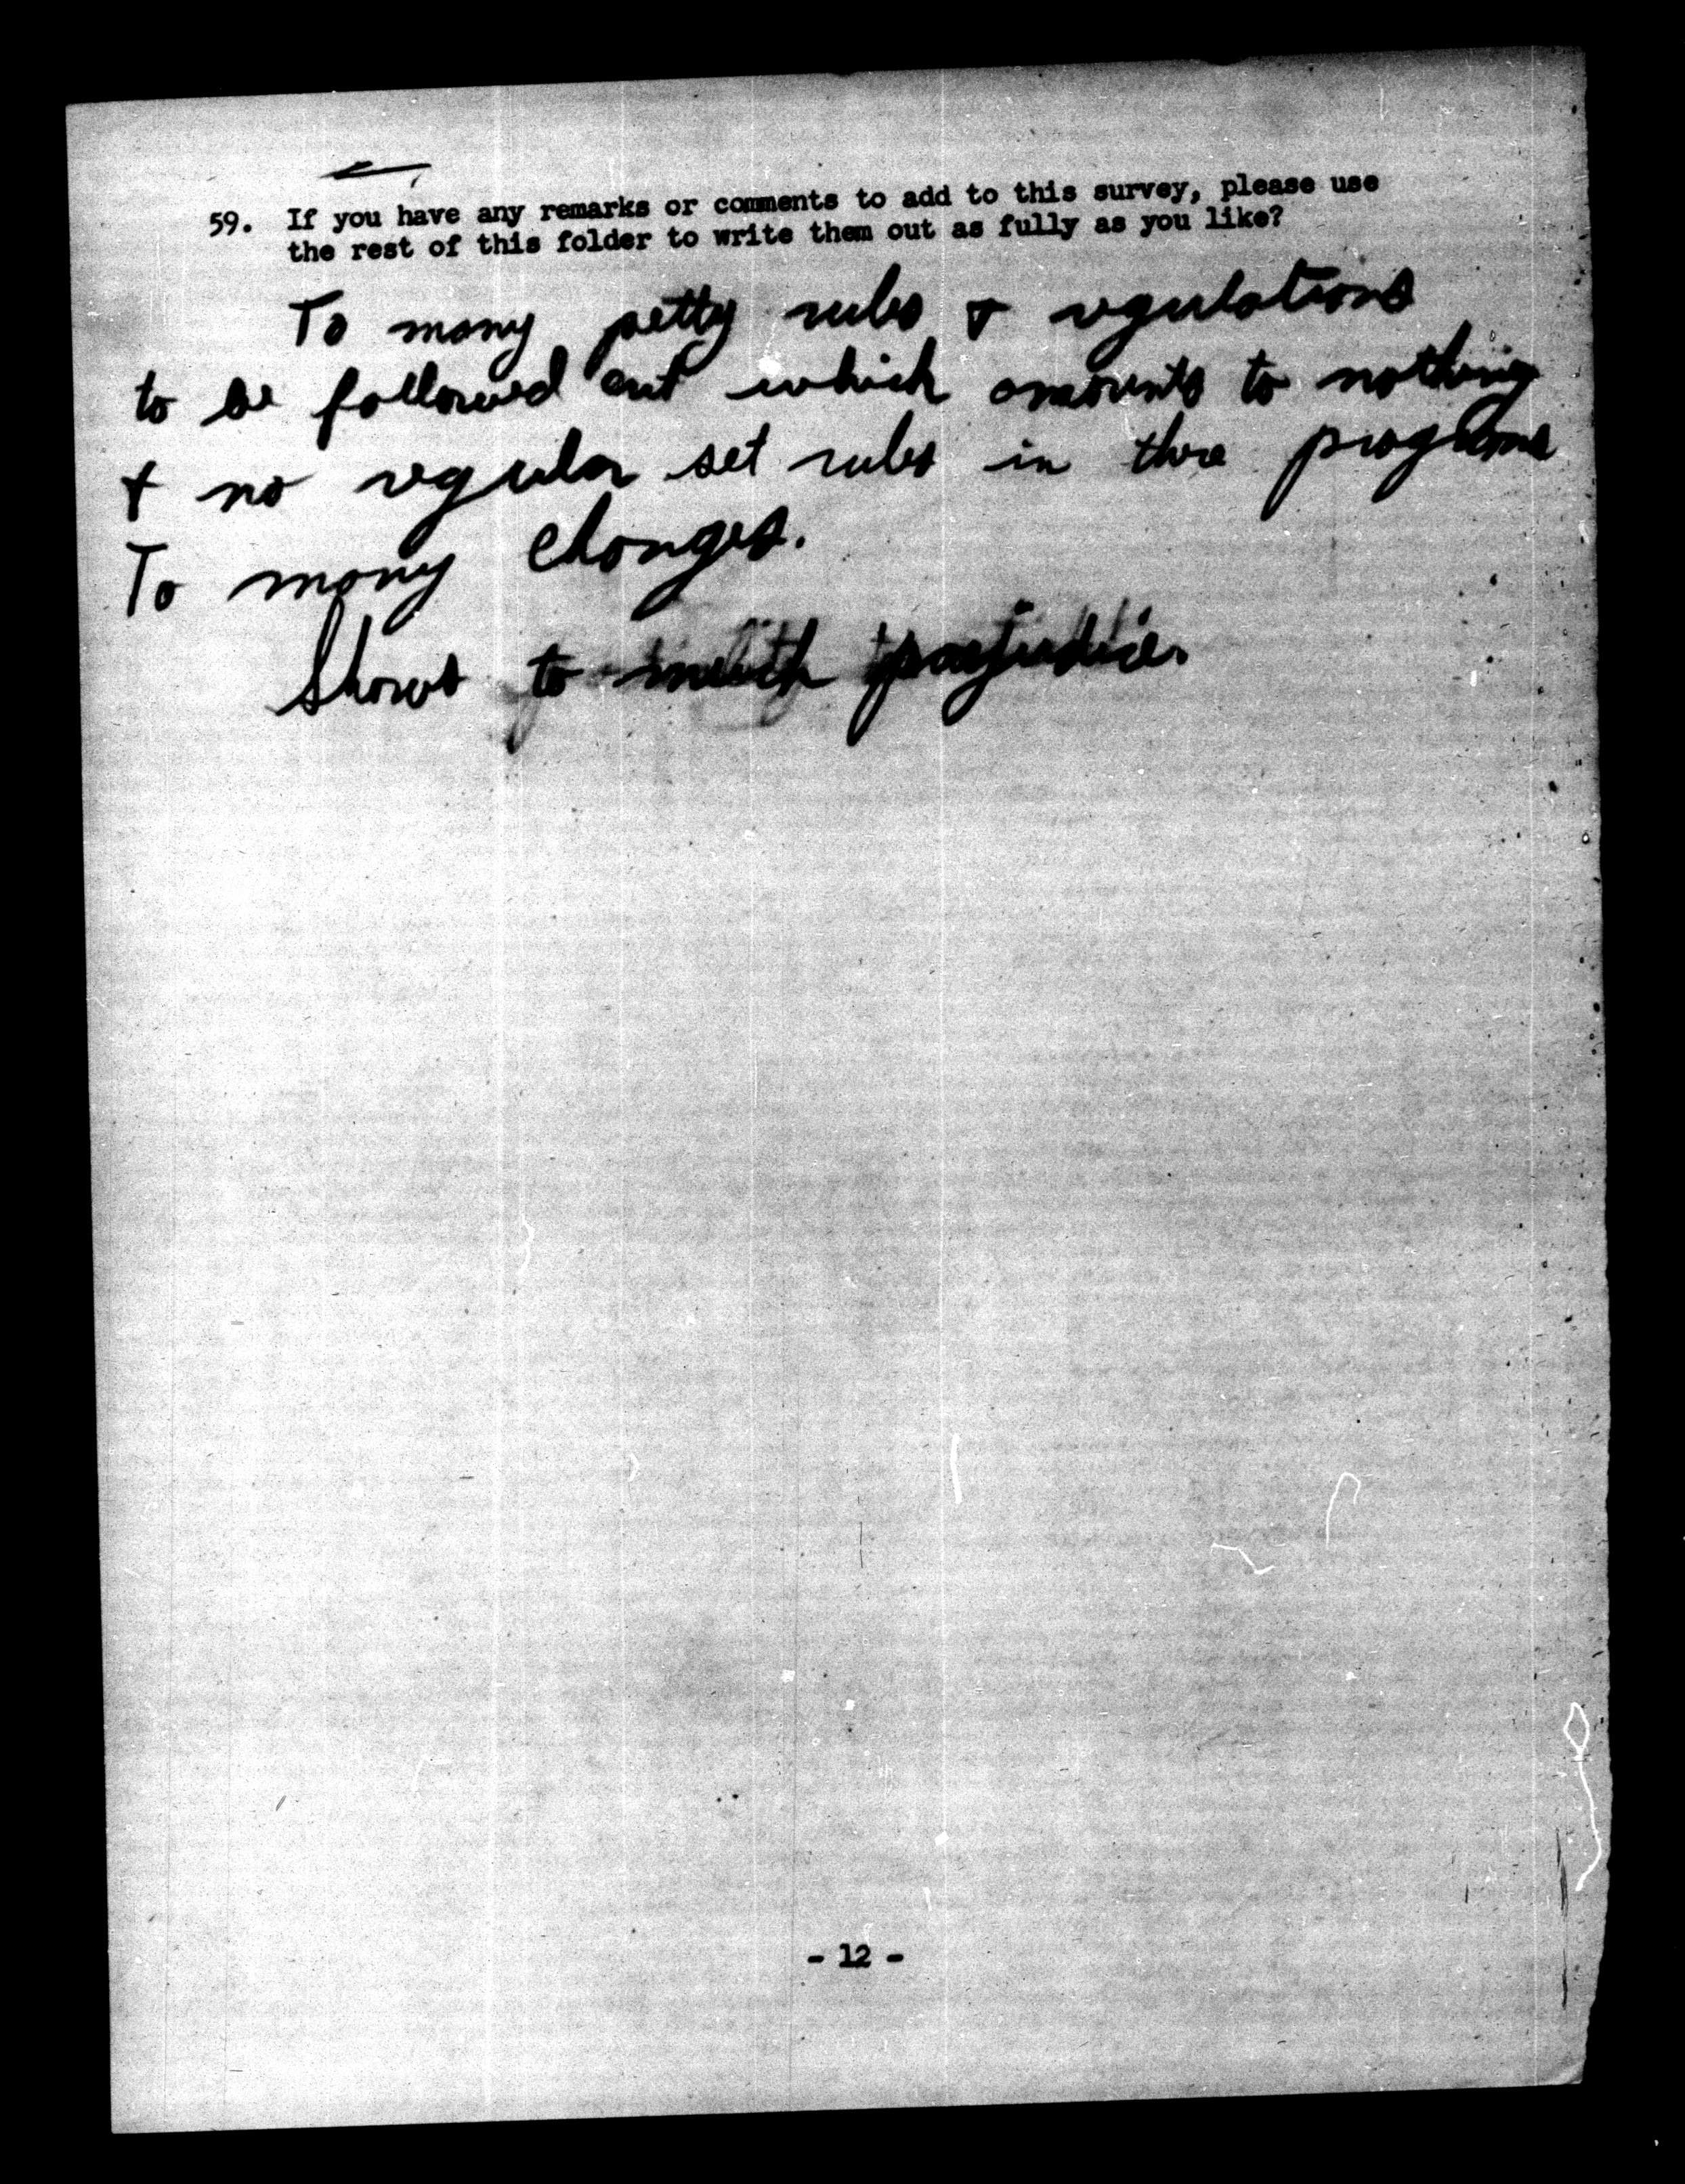 59. If you have any remarks or comments to add to this survey, please use
the rest of this folder to write them out as fully as you like?
To many petty rules & regulations
to be followed out which amounts to nothing
& no regular set rules in there programs
To many changes.
Shows to much prejudice.
- 12 -